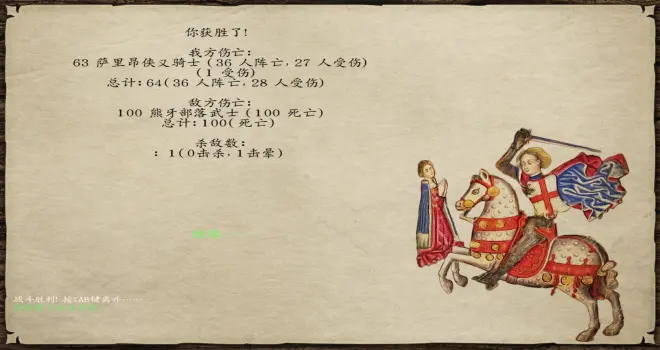 你获胜了!
我方伤亡:
63 萨里昂侠义骑士 (36 人阵亡, 27 人受伤)
(1 受伤)
总计: 64(36 人阵亡, 28 人受伤)
敌方伤亡:
100 熊牙部落武士 (100 死亡)
总计: 100( 死亡)
杀敌数:
: 1(0击杀, 1击晕)
战斗胜利! 按TAB键离开……